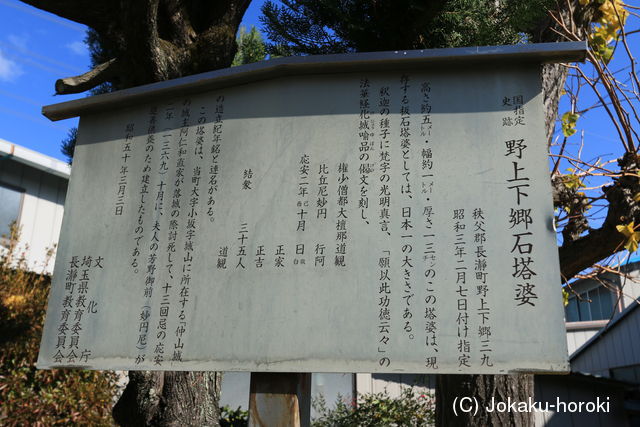 国指定
史跡
野上下郷石塔婆
秩父郡長瀞町野上下郷三九
昭和三年二月七日付け指定
高さ約五メートル・幅約一メートル・厚さ一三センチのこの塔婆は、現
存する板石塔婆としては、日本一の大きさである。
釈迦の種子に梵字の光明真言、「願以此功徳云々」の
法華経化城喩品の偈文を刻し、
権少僧都大壇那道観
比丘尼妙円 行阿
応安二年己酉十月 日敬白
正家
正吉
結衆 三十五人
道観
の造立紀年銘と連名がある。
この塔婆は、当町大字小坂字城山に所在する「仲山城」
の城主阿仁和直家が落城の際討死して、十三回忌の応安
二年(一三六九)十月に、夫人の芳野御前(妙円尼)が
追善供養のため建立したものである。
昭和五十年三月三日
文化庁
埼玉県教育委員会
長瀞町教育委員会
(C) Jokaku-horoki